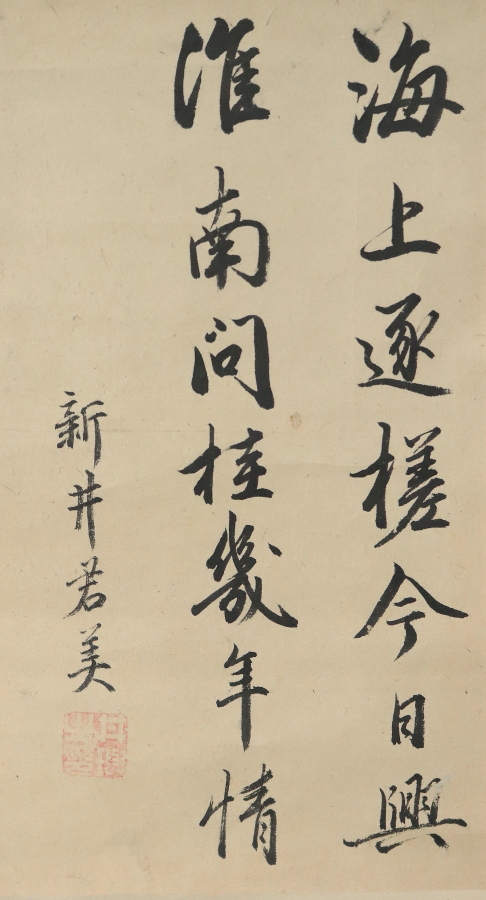 海上逐槎今日興
淮南問桂幾年情
新井君美